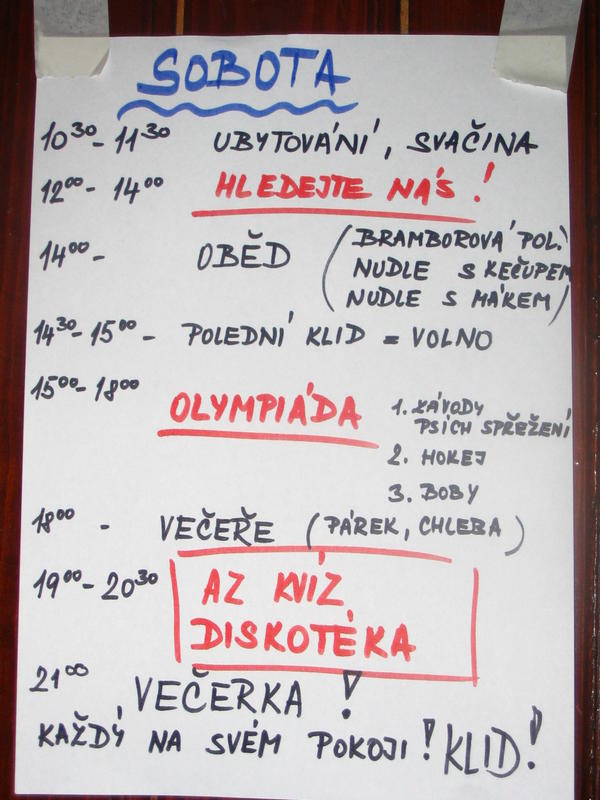 SOBOTA
10³⁰ - 11³⁰ UBYTOVÁNÍ, SVAČINA
12⁰⁰ - 14⁰⁰ HLEDEJTE NÁS!
14⁰⁰ - OBĚD (BRAMBOROVÁ POL.
NUDLE S KEČUPEM
NUDLE S MÁKEM)
14³⁰ - 15⁰⁰ - POLEDNÍ KLID = VOLNO
15⁰⁰ - 18⁰⁰ OLYMPIÁDA 1. ZÁVODY
PSÍCH SPŘEŽENÍ
2. HOKEJ
3. BOBY
18⁰⁰ - VEČEŘE (PÁREK, CHLEBA)
19⁰⁰ - 20³⁰ AZ KVÍZ
DISKOTÉKA
21⁰⁰ VEČERKA!
KAŽDÝ NA SVÉM POKOJI! KLID!